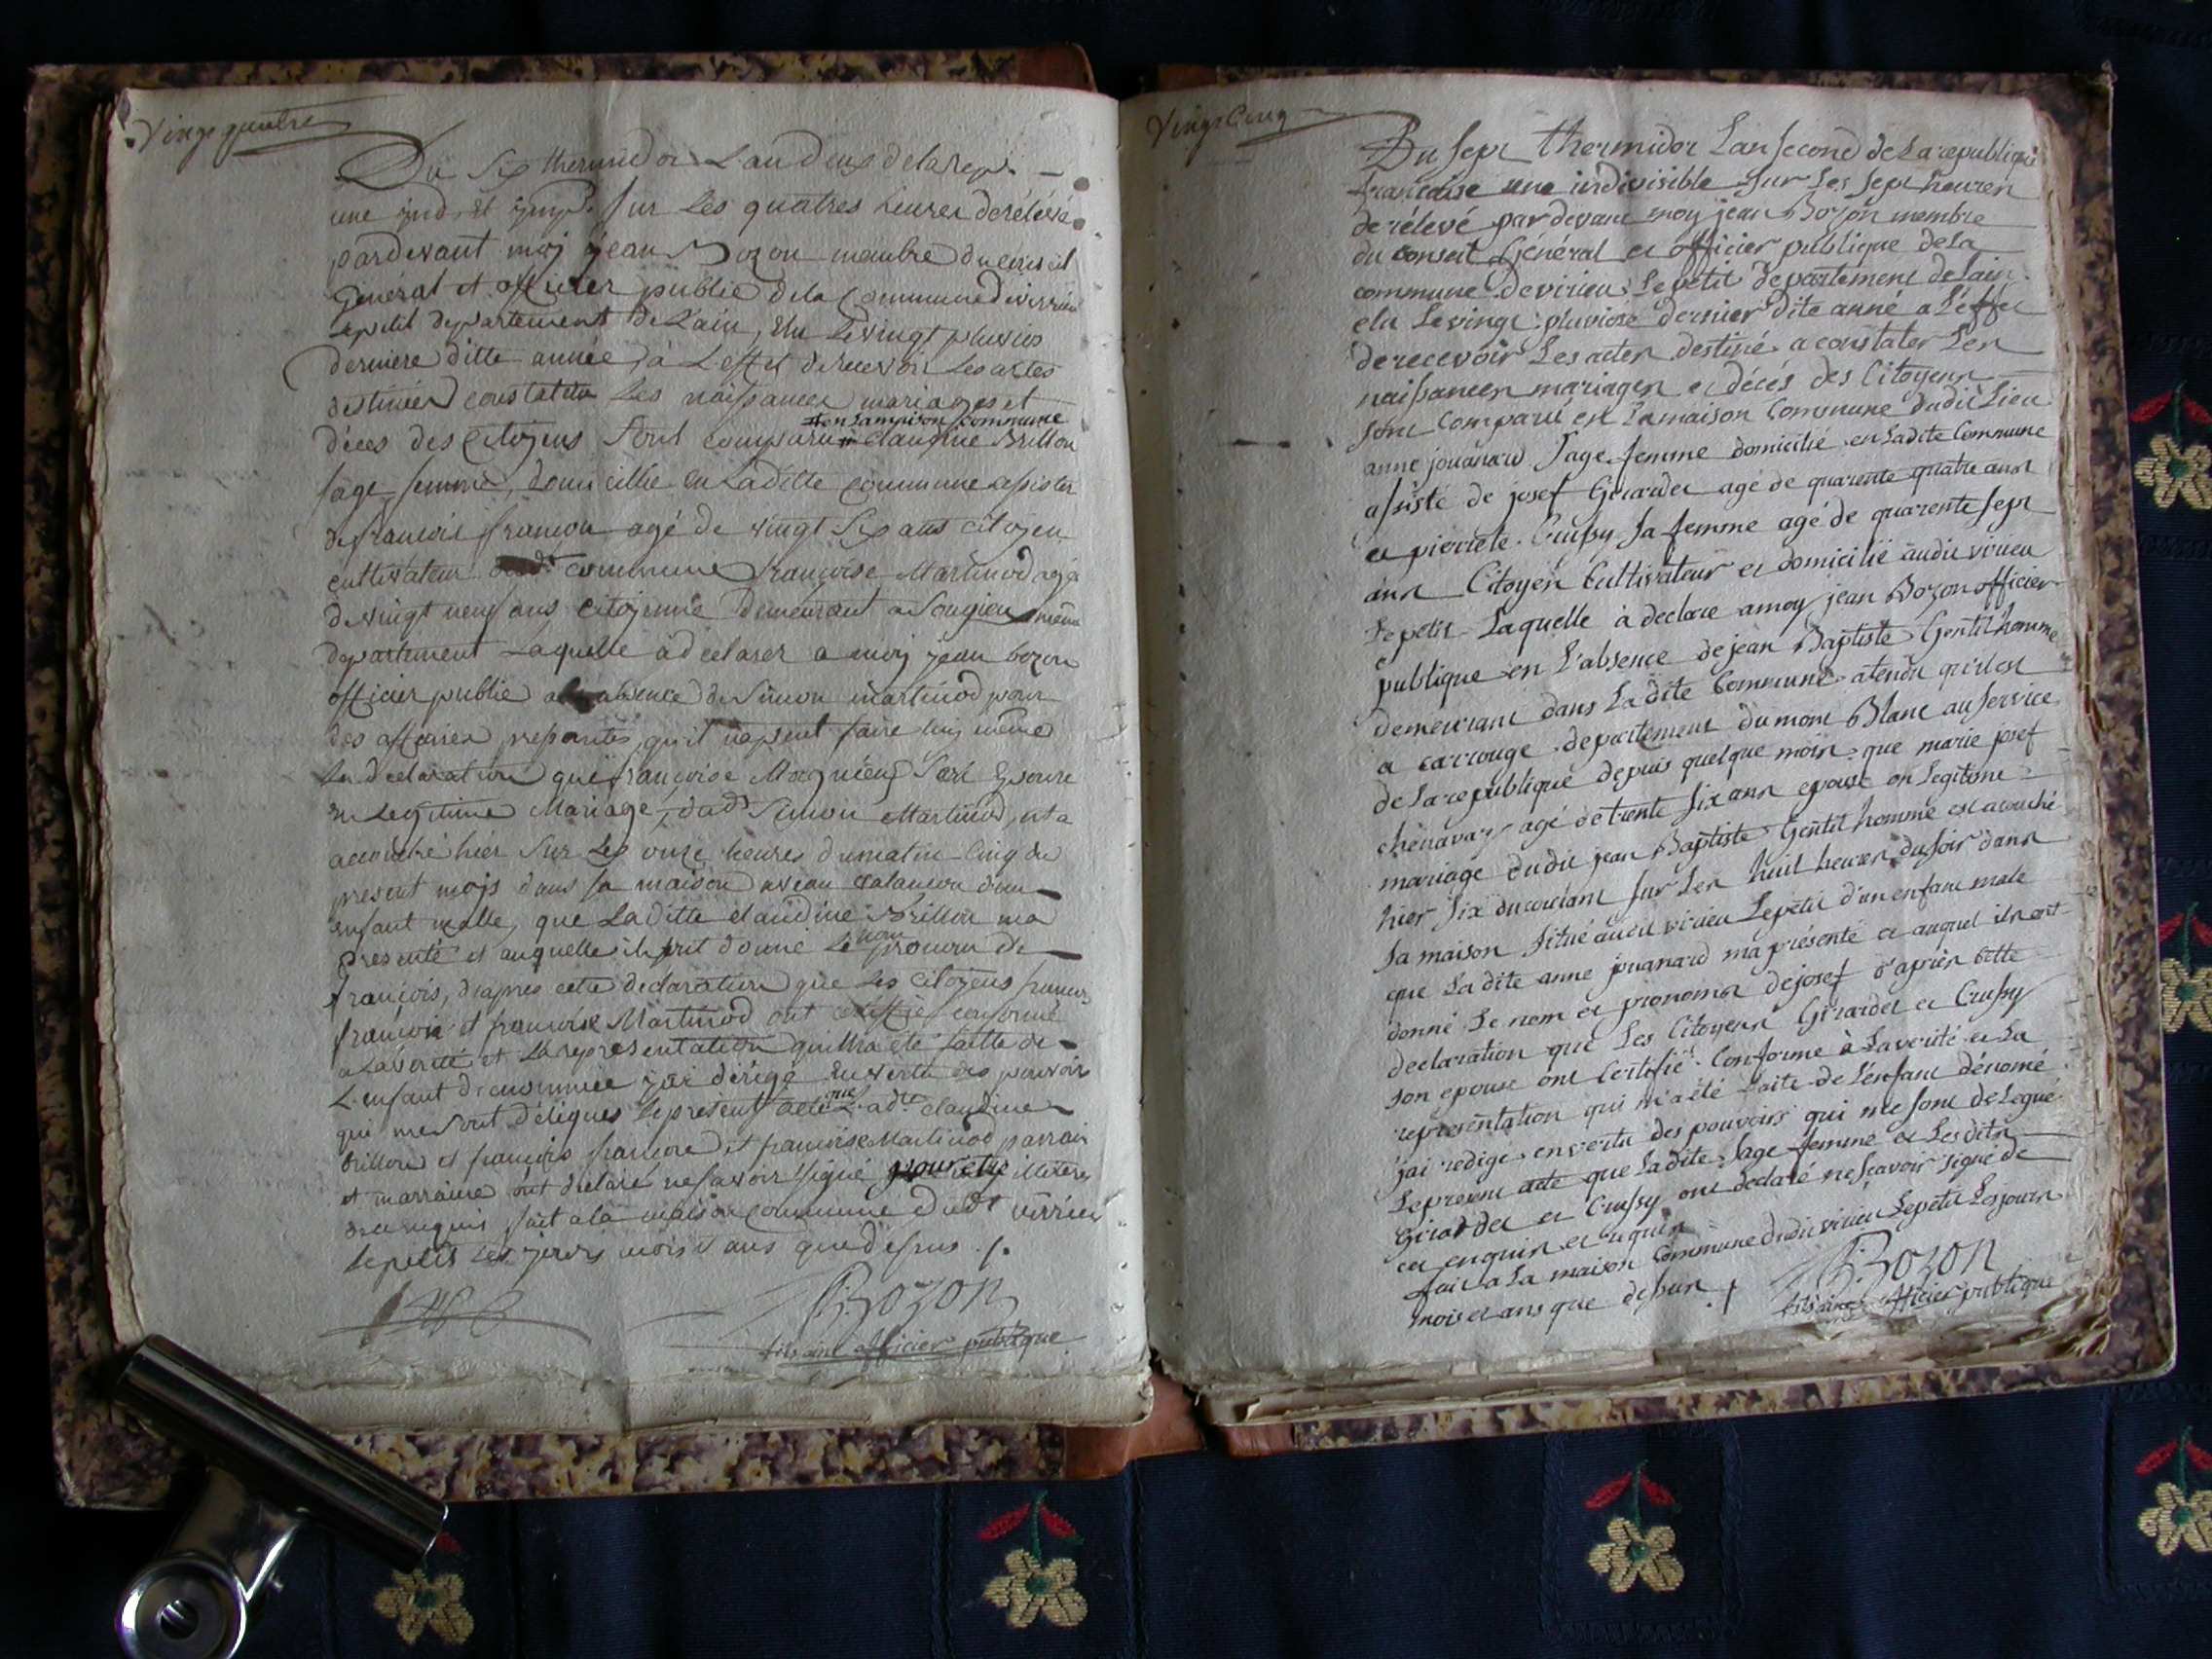 Vingt quatre
Du Six thermidor L'an deux de la rep.
une ind. et imp. sur les quatres heures de rélévé
pardevant moy jean Bozon membre du conseil
Général et officier public de la Commune de virrieu
le petit departement de L'ain, élu le vingt pluvios
derniere ditte année à L'effet de recevoir les actes
destinées constater les naissances mariages et
en la maison commune
déces des Citoyens sont comparu claudine Brillon
sage femme, domicillié en laditte commune assister
de francois françon agé de vingt six ans citoyen
cultivateur commune françoise Martinod agé
de vingt neuf ans citoyenne demeurant a Songieu meme
departement Laquelle à déclarer a moy jean bozon
officier public absence de Simon martinod pour
des affaires qu'il ne peut faire luy même
la declaration que françoise Sert Epouse
en Legitime Mariage, dud Simon Martinod, et a
accouché hier sur les onze heures du matin cinq du
present mois dans sa maison d'un
enfant malle, que laditte claudine Brillon ma
nom
presenté et auquelle il prit donné le pronom de
françois, d'apres cette declaration que les citoyens
françois et françoise Martinod ont conforme
a laverité et la representation quilma eté faitte de
L'enfant denommée jai dirigé en vertu des pouvoir
que
qui me sont deleques le present acte L adte claudine
brillon et françois françon et francoise Martinod parrain
et marraine ont declaré ne savoir signé pour etre
enrequis fait a la maison commune dudt virrieu
le petit les jours mois et ans que dessus ./.
J. Bozon
fils ainé officier publique
Vingt Cinq
Du sept thermidor Lan second de La republique
francaise une indivisible sur les sept heures
de rélevé par devant moy jean Bozon membre
du conseil Général et officier publique de la
commune de virieu Le petit departement de lain
elu Le vingt pluviose dernier dite anné a L'effet
de recevoir Les actes destiné a constater Les
naissances mariages et décés des Citoyens
sont Comparu en La maison Commune dudit Lieu
anne jouanard sage femme domicilié en Ladite Commune
assisté de josef Girardet agé de quarente quatre ans
et pierrete Crussy sa femme agé de quarente sept
ans Citoyen Cultivateur et domicilié audit virieu
Le petit Laquelle à declare a moy jean Bozon officier
publique en L'absence de jean Baptiste Gentilhomme
demeurant dans La dite Commune atendu qu'il est
a carrouge departement du mont Blanc au service
de La republique depuis quelque mois que marie josef
chenavay agé de trente six ans epouse en Legitime
mariage dudit jean Baptiste Gentilhomme est acouché
hier six du courant sur Les huit heures du soir dans
sa maison situé audit virieu Le petit d'un enfant male
que La dite anne jouanard ma présenté et auquel ils ont
donné Le nom et pronoms de josef d'après Cette
declaration que Les Citoyens Girardet et Crussy
son epouse ont Certifié Conforme à La verité et La
representation qui m'a été faite de L'enfant dénomé
jai redigé en vertu des pouvoirs qui me sont delegué
Le present acte que Ladite sage femme et Lesdits
Girardet et Crussy ont declaré ne sçavoir signé de
ce enquis et requis
fait a La maison Commune dudit virieu Lepetit Les jours
mois et ans que dessus ./.
J. Bozon
fils ainé officier publique